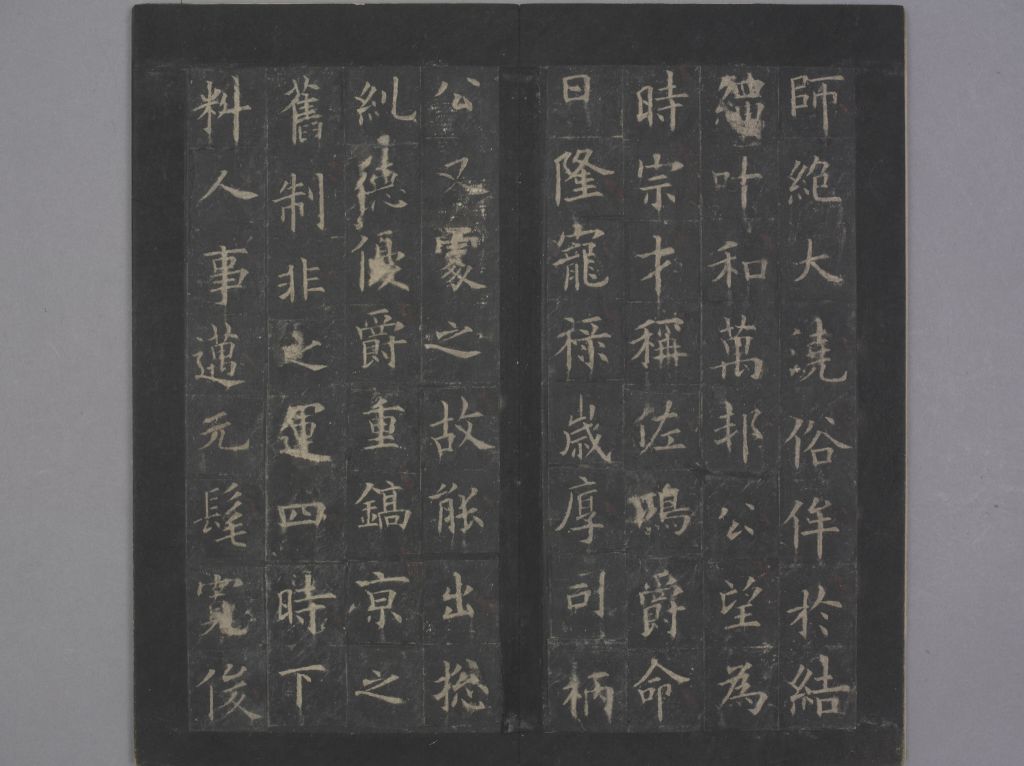 師絶大澆俗侔於結
繩叶和萬邦公望為
時宗才稱佐鳴爵命
日隆寵祿歲厚司柄
公又蒙之故能出揔
糺德優爵重鎬京之
舊制非之運四時下
料人事邁元髦寬俊